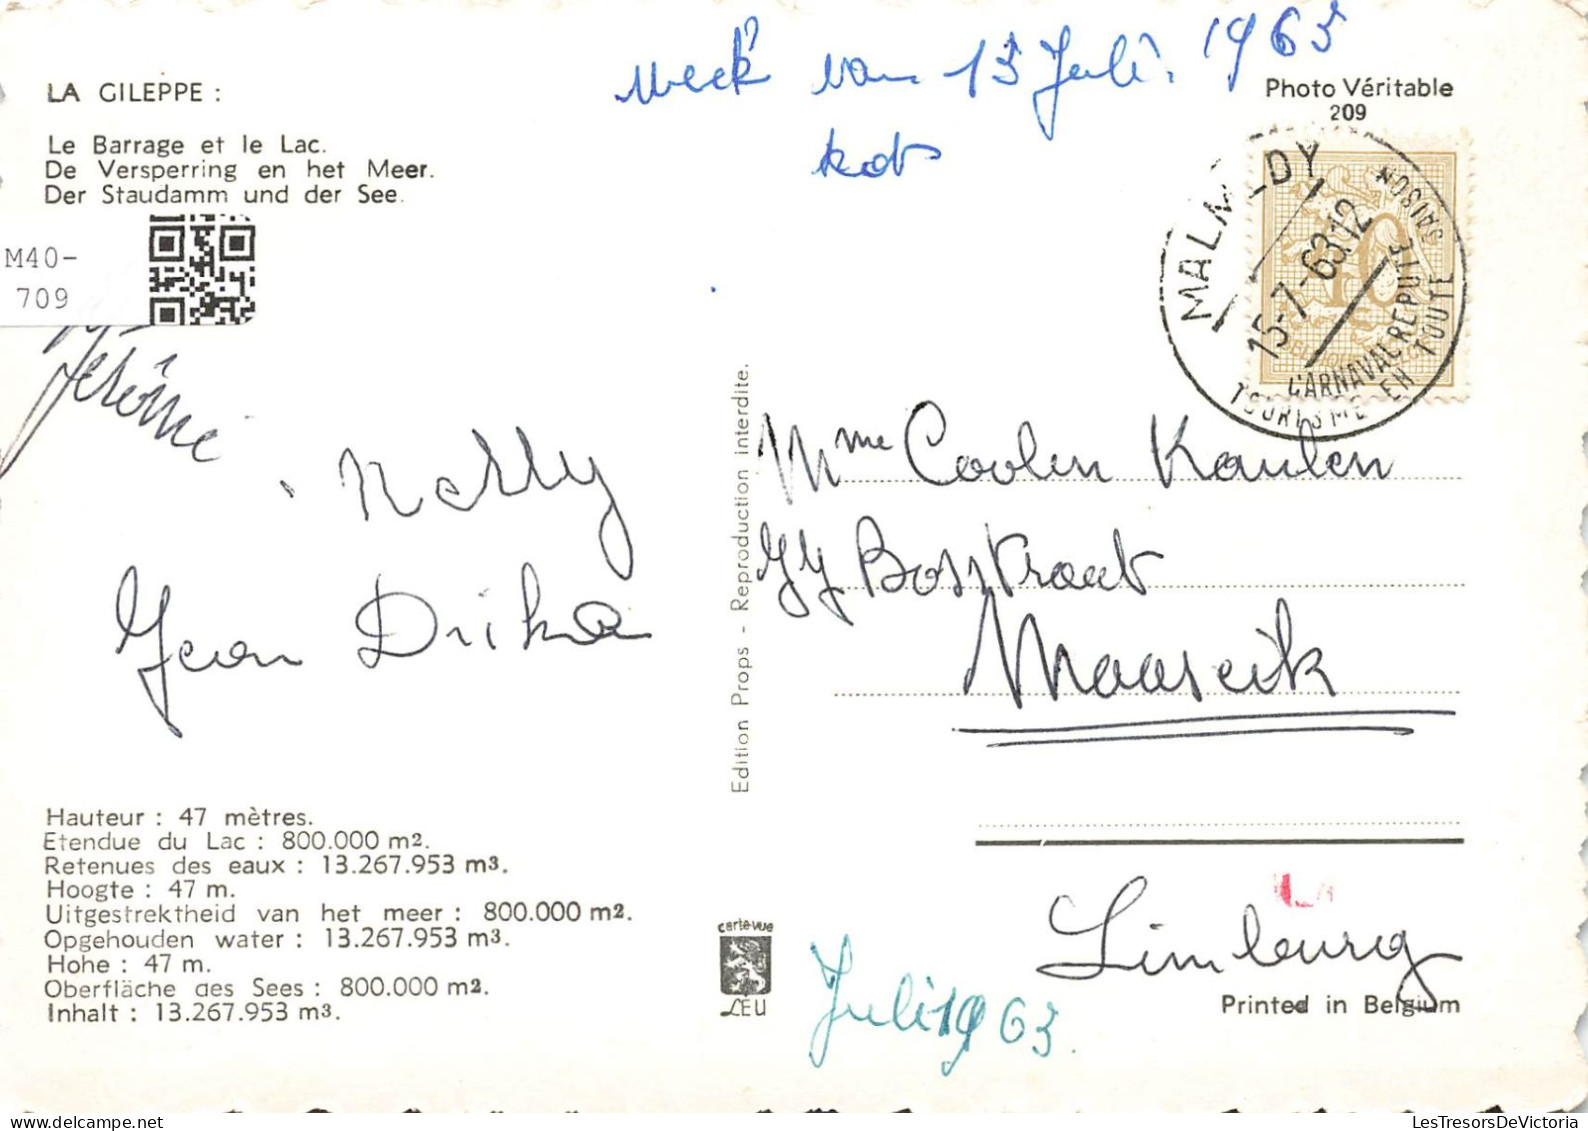 week van 13 Juli 1963
LA GILEPPE :
Photo Véritable
209
Le Barrage et le Lac.
De Versperring en het Meer.
Der Staudamm und der See.
M40-
709
MALMEDY
15-7-63.12
CARNAVAL REPUTE
TOURISME EN TOUTE SAISON
Jérôme
Nelly
Jean Drika
Mme Coolen Kaulen
Bosstraat
Maaseik
Limburg
Edition Props - Reproduction interdite.
Hauteur : 47 mètres.
Etendue du Lac : 800.000 m2.
Retenues des eaux : 13.267.953 m3.
Hoogte : 47 m.
Uitgestrektheid van het meer : 800.000 m2.
Opgehouden water : 13.267.953 m3.
Hohe : 47 m.
Oberfläche des Sees : 800.000 m2.
Inhalt : 13.267.953 m3.
carte-vue
LEU
Juli 1963.
Printed in Belgium
LesTresorsDeVictoria